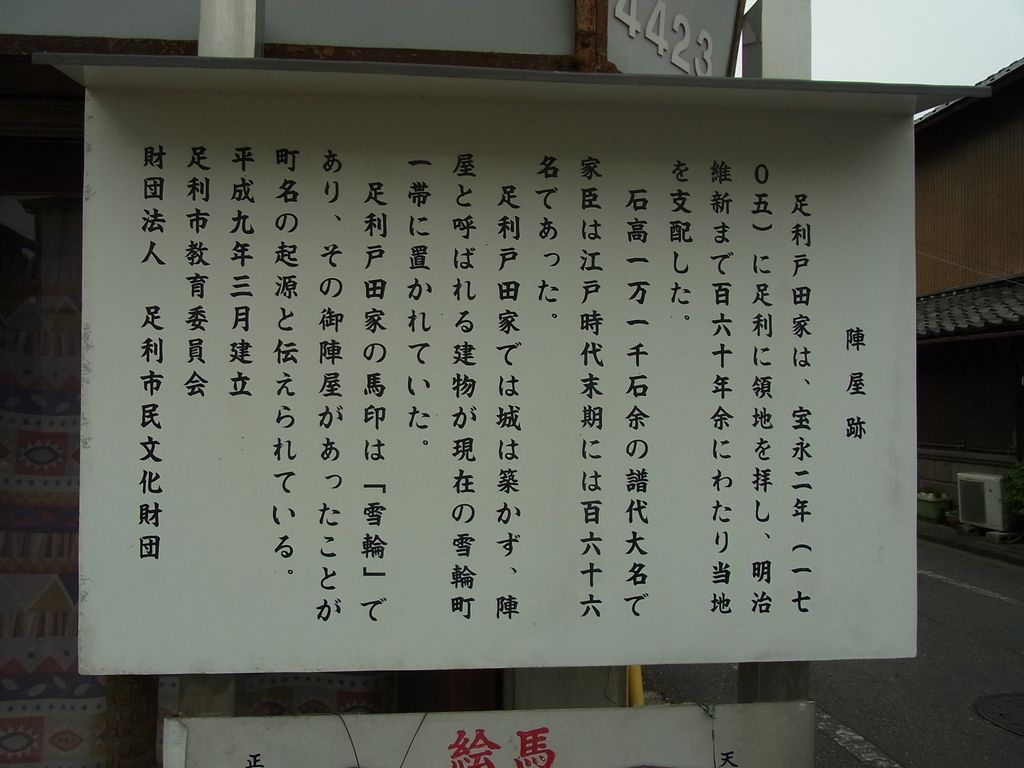 4423
陣屋跡
足利戸田家は、宝永二年（一七
０五）に足利に領地を拝し、明治
維新まで百六十年余にわたり当地
を支配した。
石高一万一千石余の譜代大名で
家臣は江戸時代末期には百六十六
名であった。
足利戸田家では城は築かず、陣
屋と呼ばれる建物が現在の雪輪町
一帯に置かれていた。
足利戸田家の馬印は「雪輪」で
あり、その御陣屋があったことが
町名の起源と伝えられている。
平成九年三月建立
足利市教育委員会
財団法人　足利市民文化財団
絵馬
天
正